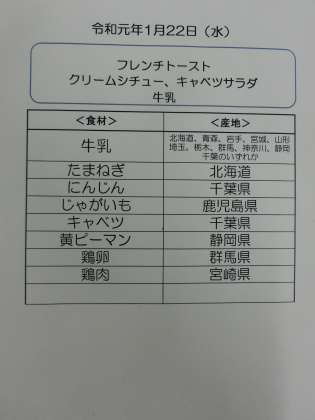 令和元年1月22日（水）
フレンチトースト
クリームシチュー、キャベツサラダ
牛乳
＜食材＞ ＜産地＞
牛乳 北海道、青森、岩手、宮城、山形
埼玉、栃木、群馬、神奈川、静岡
千葉のいずれか
たまねぎ 北海道
にんじん 千葉県
じゃがいも 鹿児島県
キャベツ 千葉県
黄ピーマン 静岡県
鶏卵 群馬県
鶏肉 宮崎県